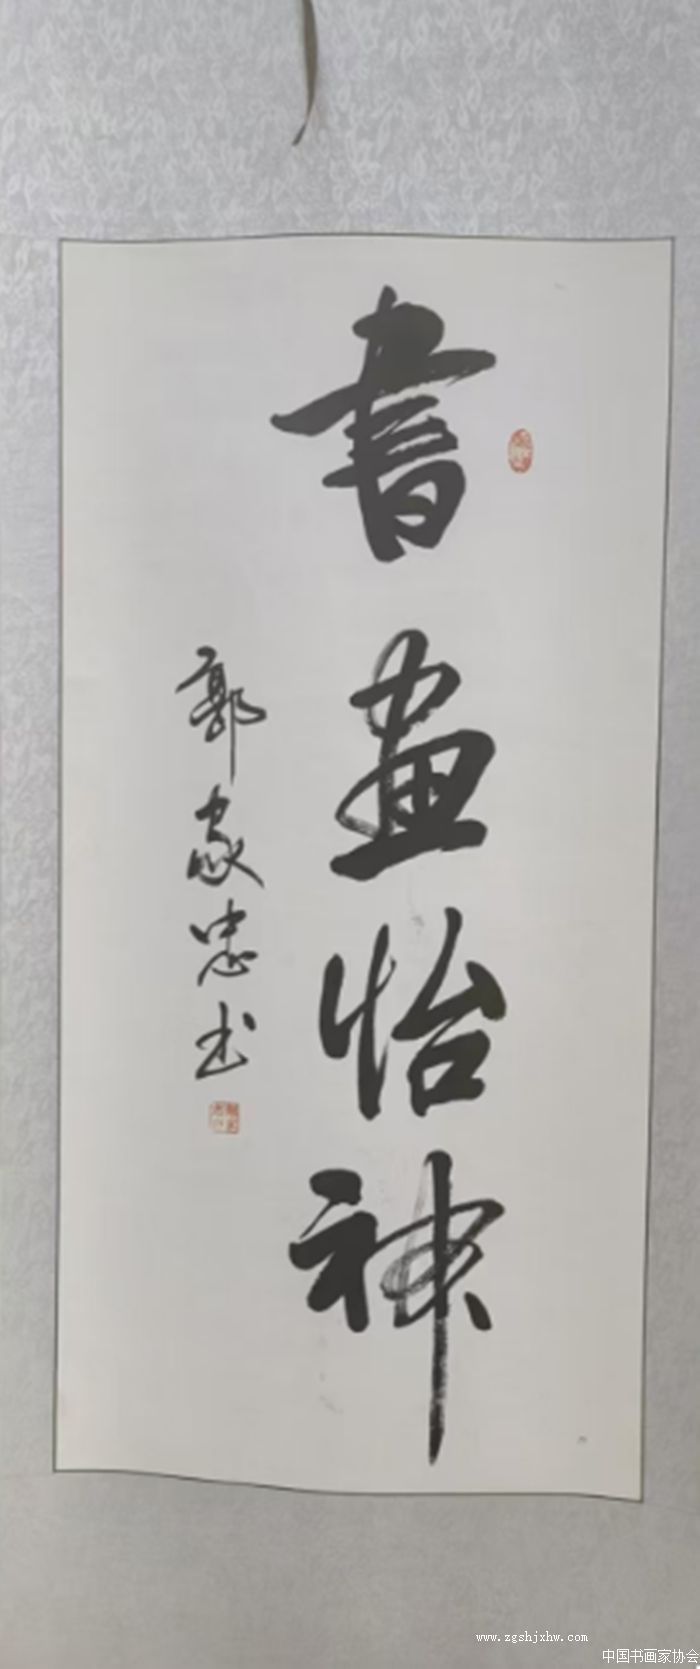 書畫怡神
郭家忠书
www.zgshjxhw.com
中国书画家协会